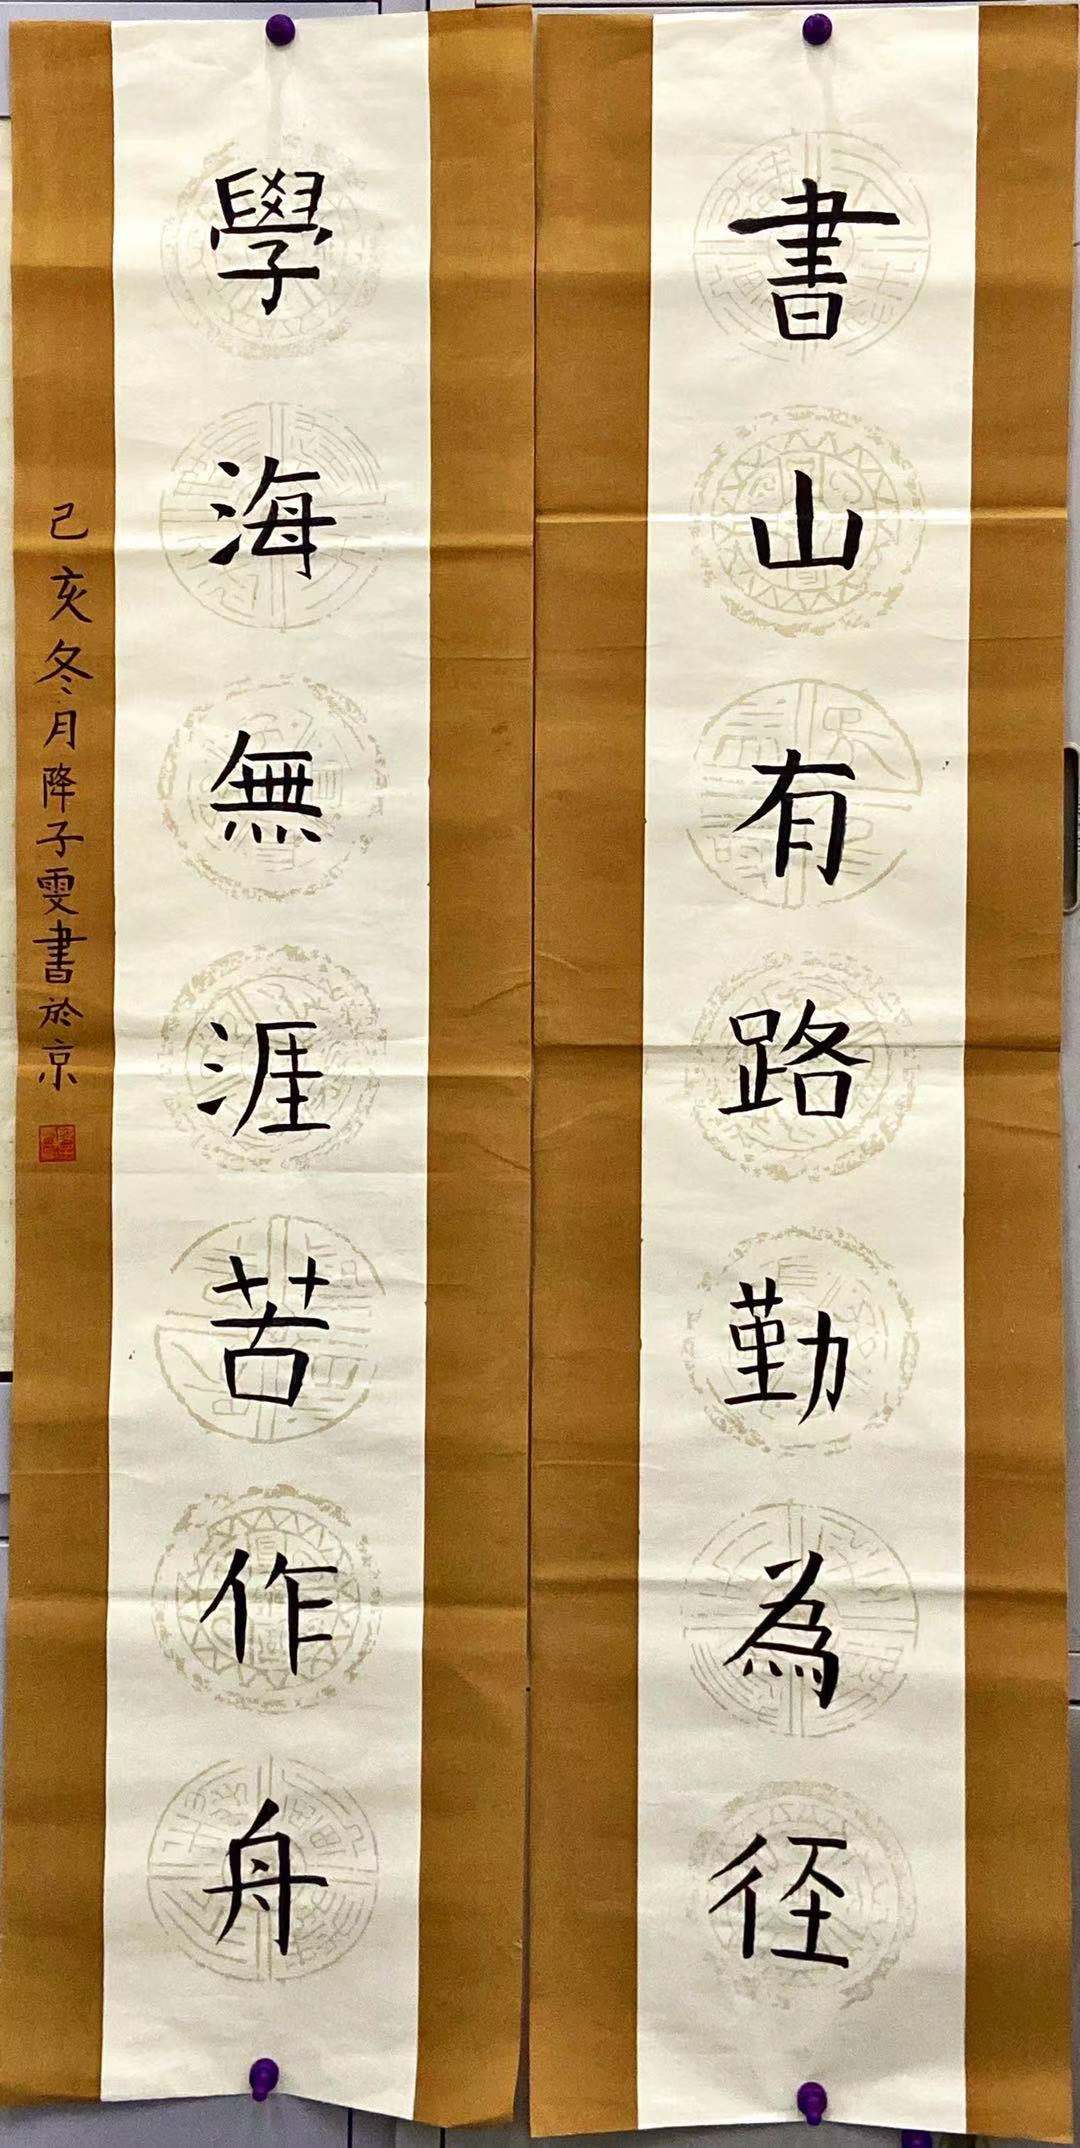 書山有路勤為径
學海無涯苦作舟
己亥冬月降子雯書於京